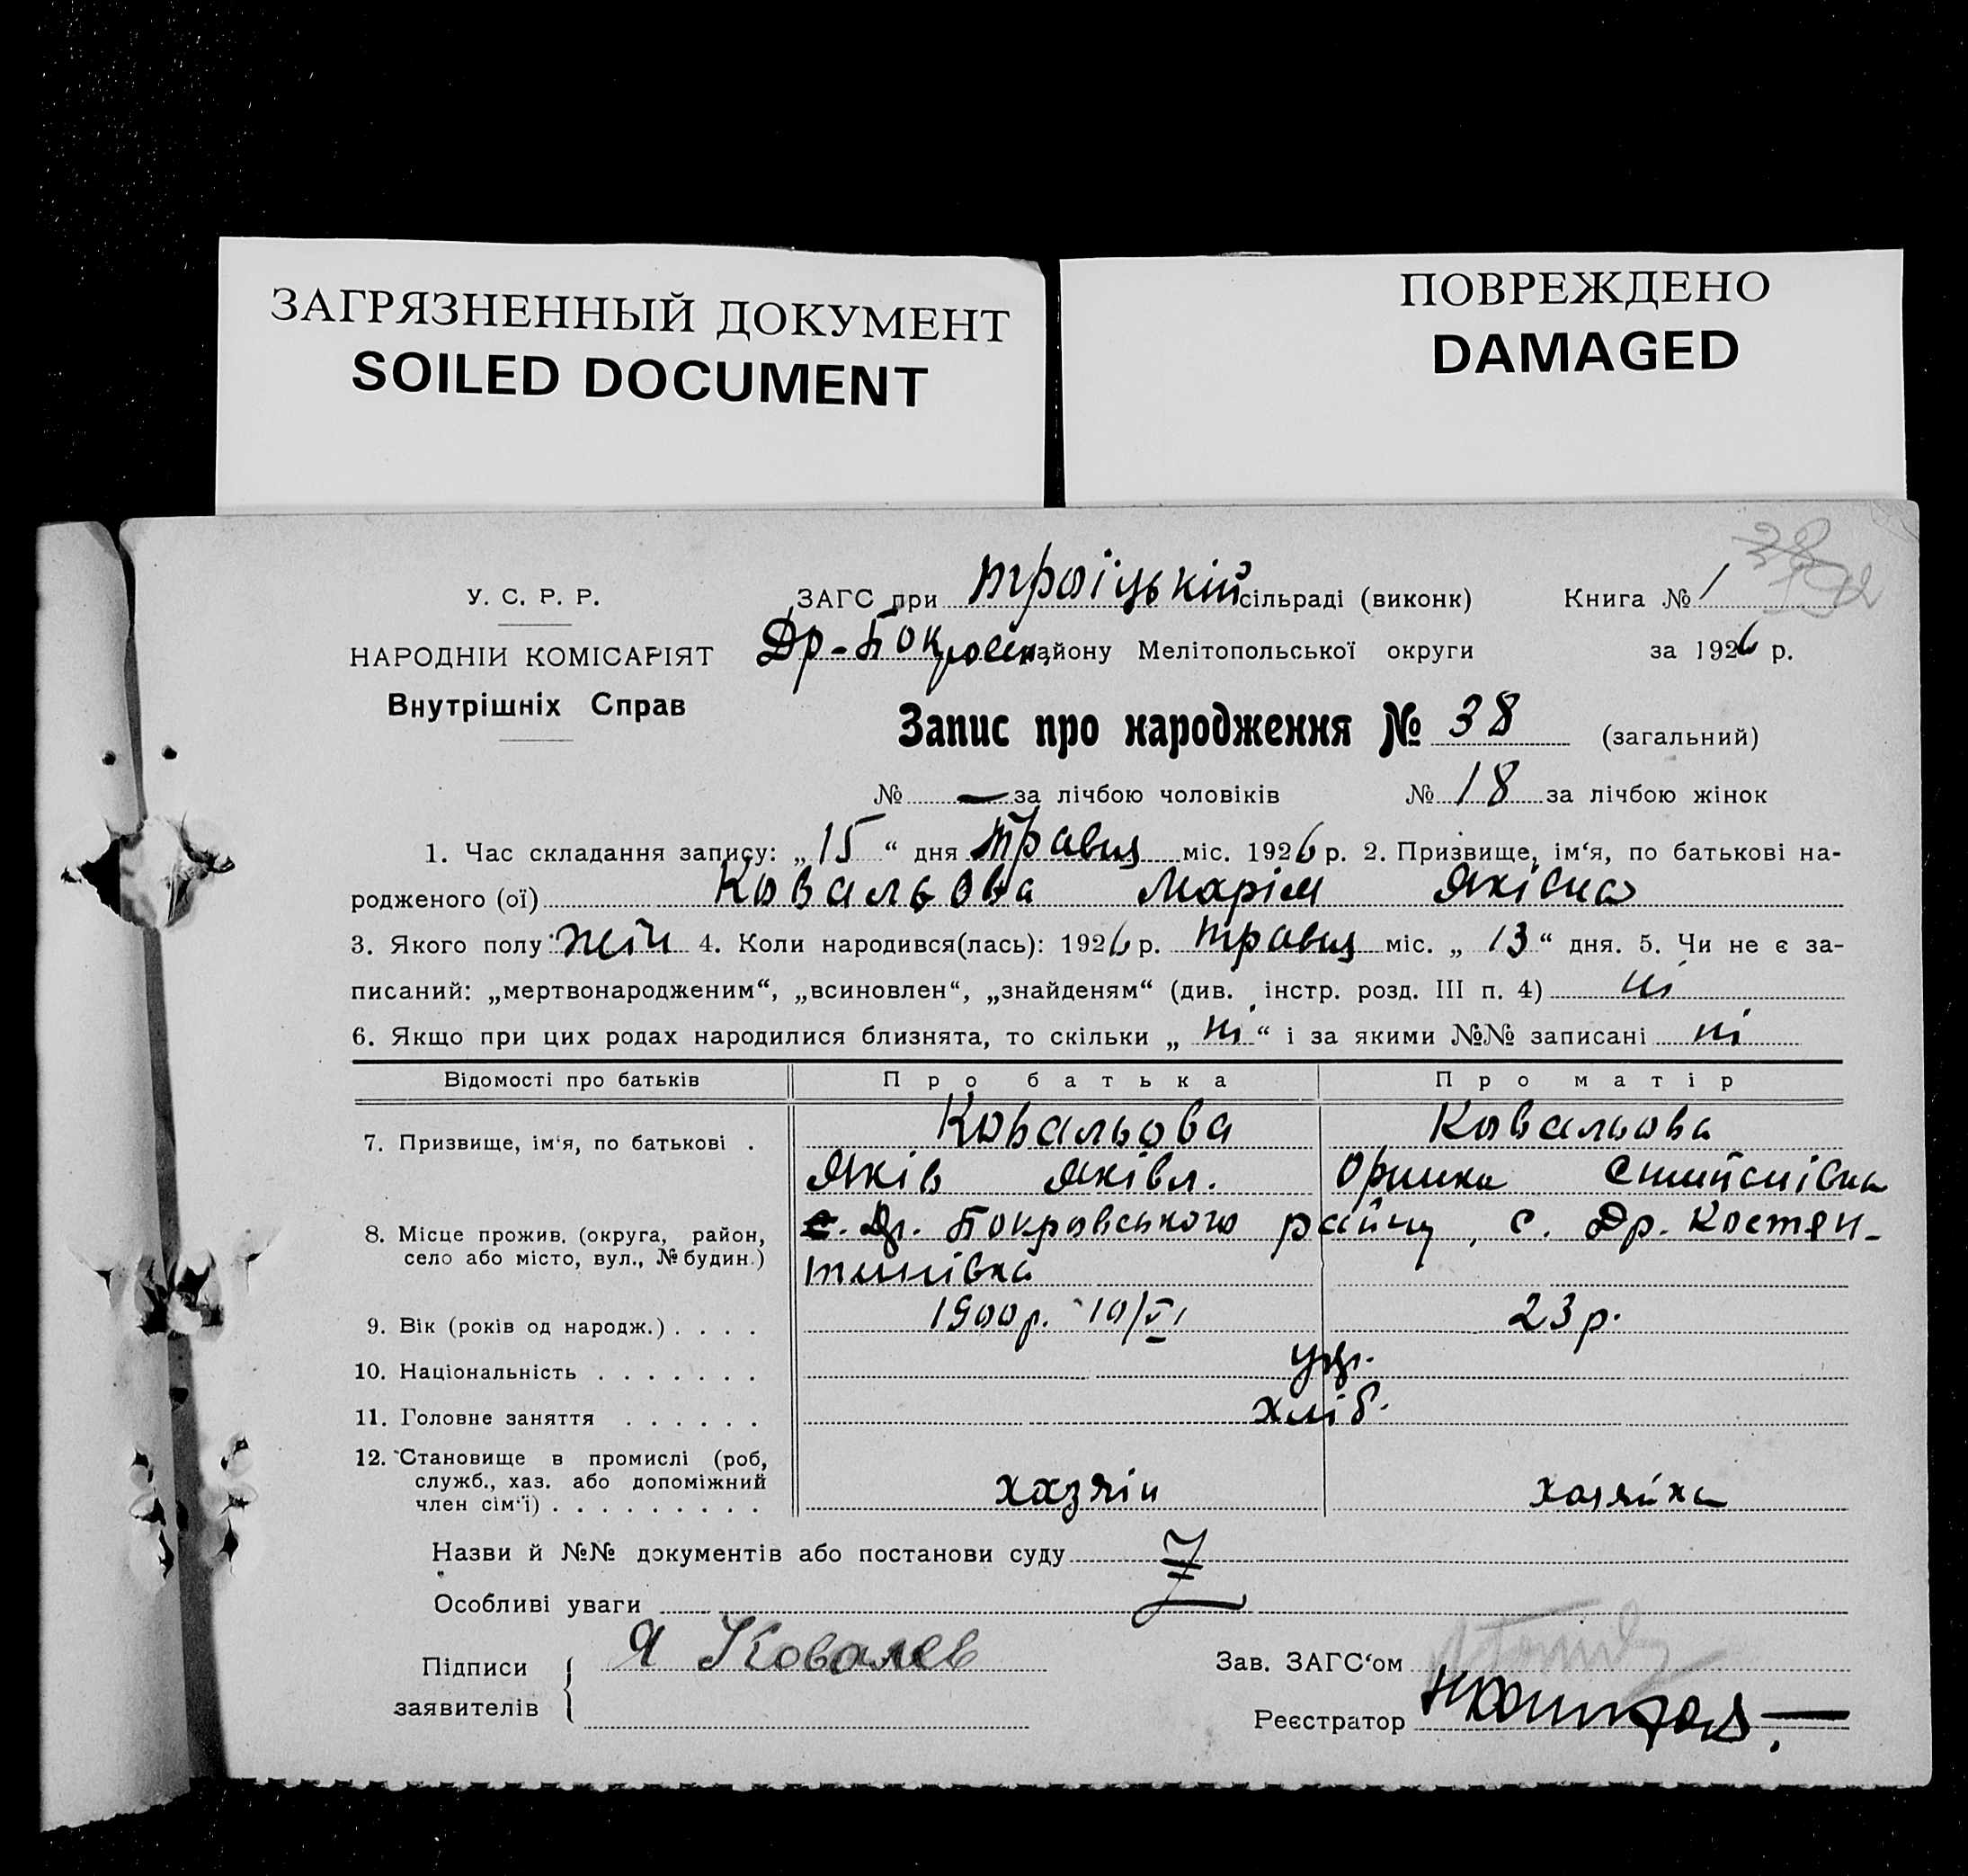 ЗАГРЯЗНЕННЫЙ ДОКУМЕНТ
SOILED DOCUMENT
ПОВРЕЖДЕНО
DAMAGED
У. С. Р. Р.
НАРОДНІЙ КОМІСАРІЯТ
Внутрішніх Справ
ЗАГС при Троіцькій сільраді (виконк) Книга № 1
району Мелітопольської округи за 1926 р.
Запис про народження № 38 (загальний)
№ — за лічбою чоловіків № 18 за лічбою жінок
1. Час складання запису: „15“ дня травня міс. 1926 р. 2. Призвище, ім‘я, по батькові на-
родженого (ої) Ковальова Марія Яківна
3. Якого полу жін 4. Коли народився(лась): 1926 р. травня міс. „13“ дня. 5. Чи не є за-
писаний: „мертвонародженим“, „всиновлен“, „знайденям“ (див. інстр. розд. III п. 4) ні
6. Якщо при цих родах народилися близнята, то скільки „ні“ і за якими №№ записані ні
Відомості про батьків Про батька Про матір
7. Призвище, ім‘я, по батькові . Ковальова Ковальова
Яків Яківл. Оришка
8. Місце прожив. (округа, район, село або місто, вул., № будин.) Покровського району, с. Др. Костян-
тинівка
9. Вік (років од народж.) . . . . 1900 р. 10/VI 23 р.
10. Національність . . . . . . . укр.
11. Головне заняття . . . . . . хліб.
12. Становище в промислі (роб,
служб., хаз. або допоміжний
член сім‘ї) . . . . . . . . . хазяін хазяйка
Назви й №№ документів або постанови суду
Особливі уваги
Підписи
заявителів
Я Ковалев
Зав. ЗАГС‘ом
Реєстратор